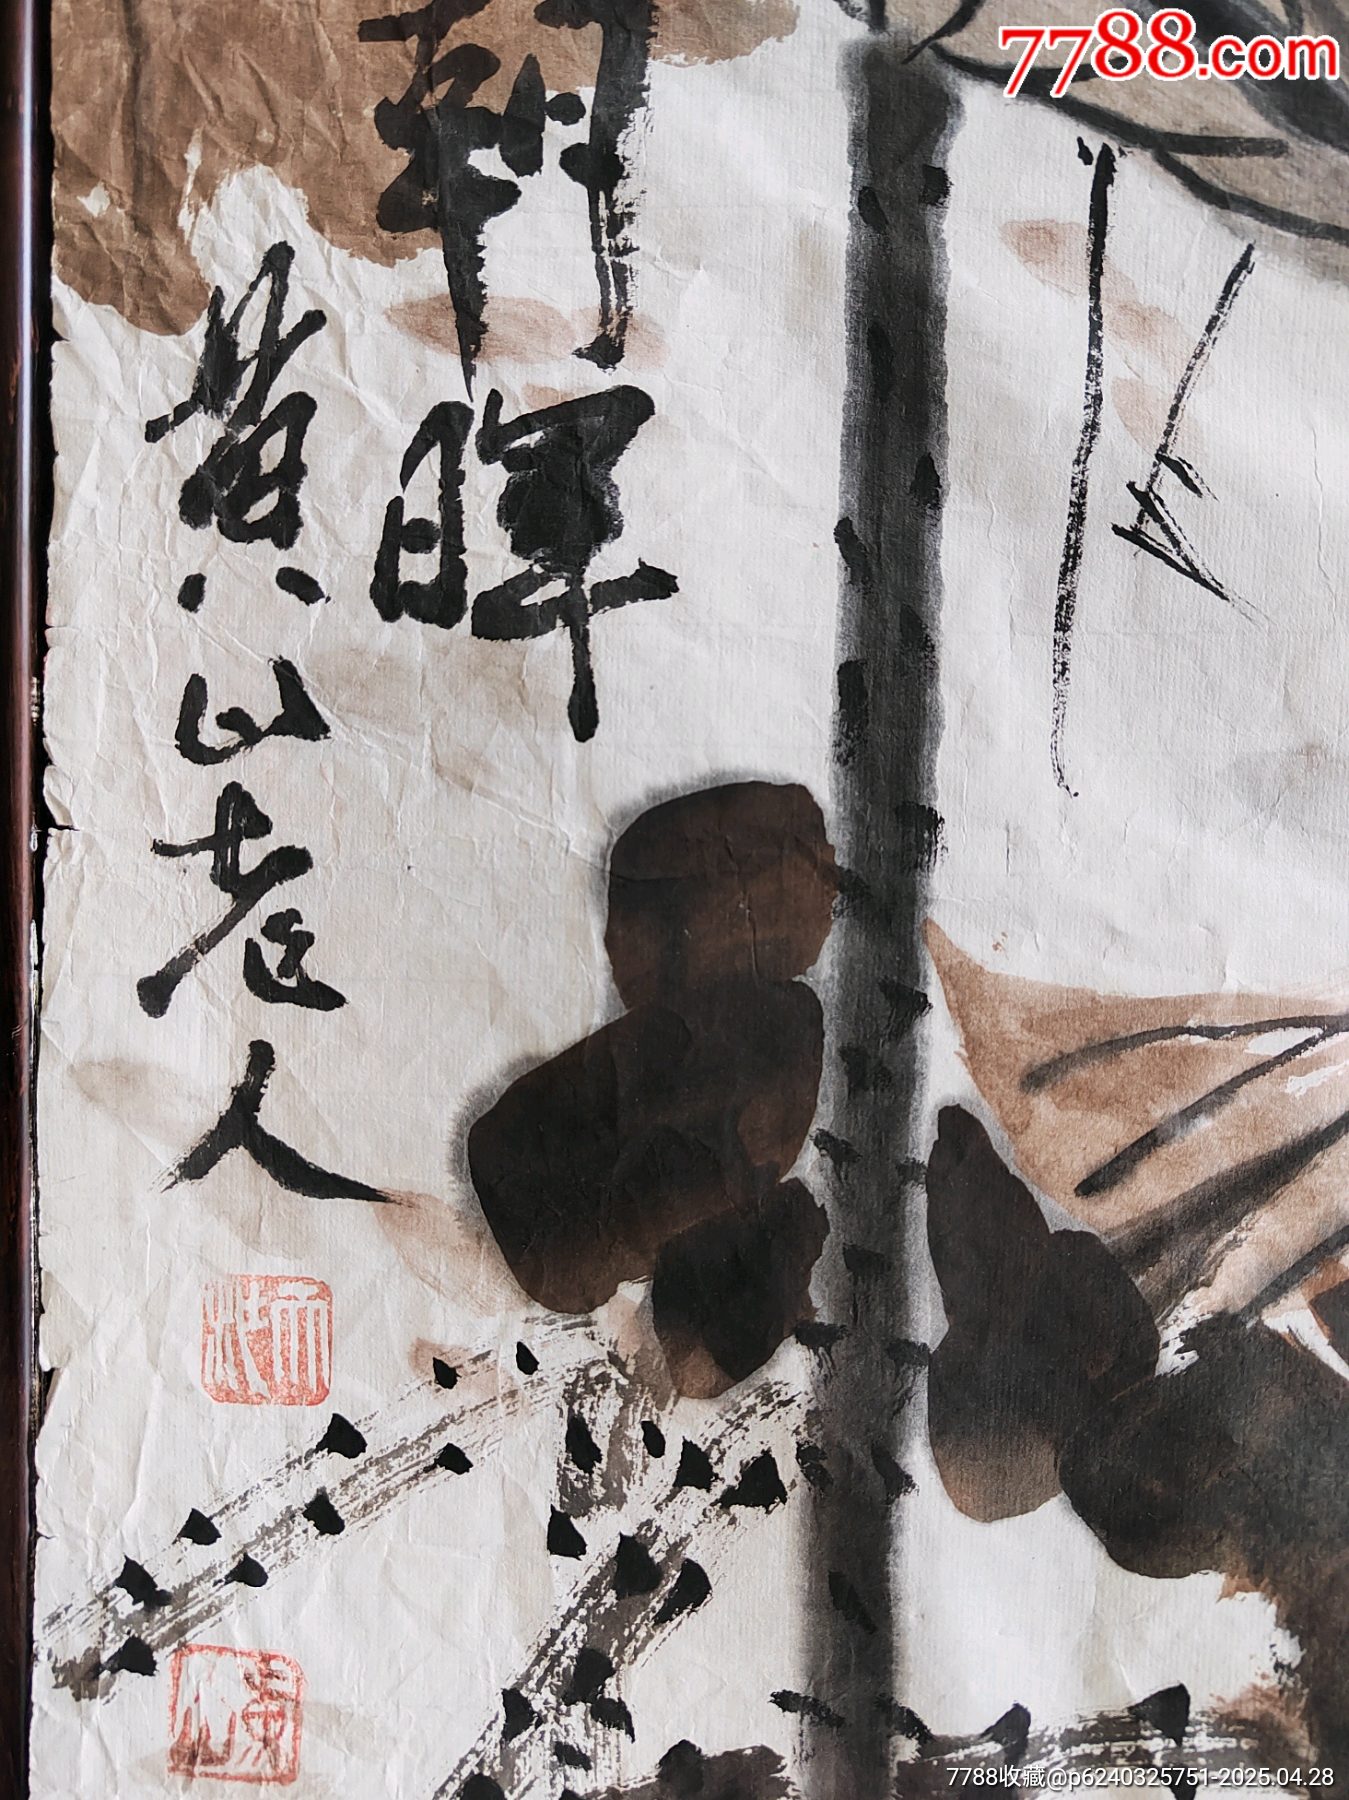 7788.com
朝
暉
黄山老人
7788收藏@p6240325751-2025.04.28